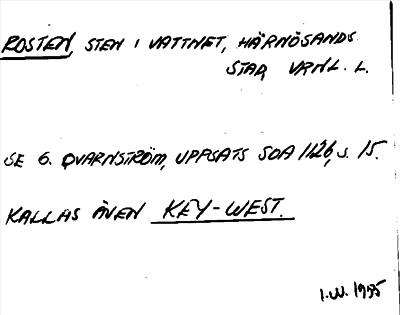 ROSTEN, STEN I VATTNET, HÄRNÖSANDS
STAD, VRNL. L.
SE G. QVARNSTRÖM, UPPSATS SOA 1126, s. 15.
KALLAS ÄVEN KEY-WEST.
I.W. 1935